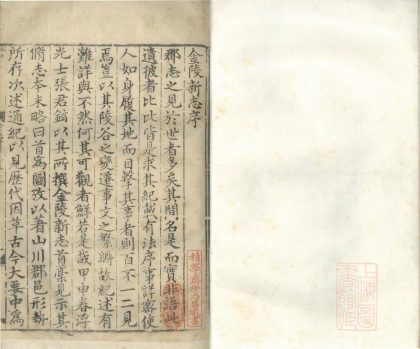 金陵新志序
郡志之見於世者多矣其間名是而實非語此
遺彼者比比皆是求其紀載有法序事詳審使
人如身履其地而目擊其事者則百不一二見
焉豈以其陵谷之變遷事文之繁癖故紀述有
難詳與不然何其可觀者鮮若是哉甲申春浮
光士張君鉉以其所撰金陵新志首藁見示其
脩志本末略曰首為圖攷以著山川郡邑形勢
所存次述通紀以見歷代因革古今大要中為